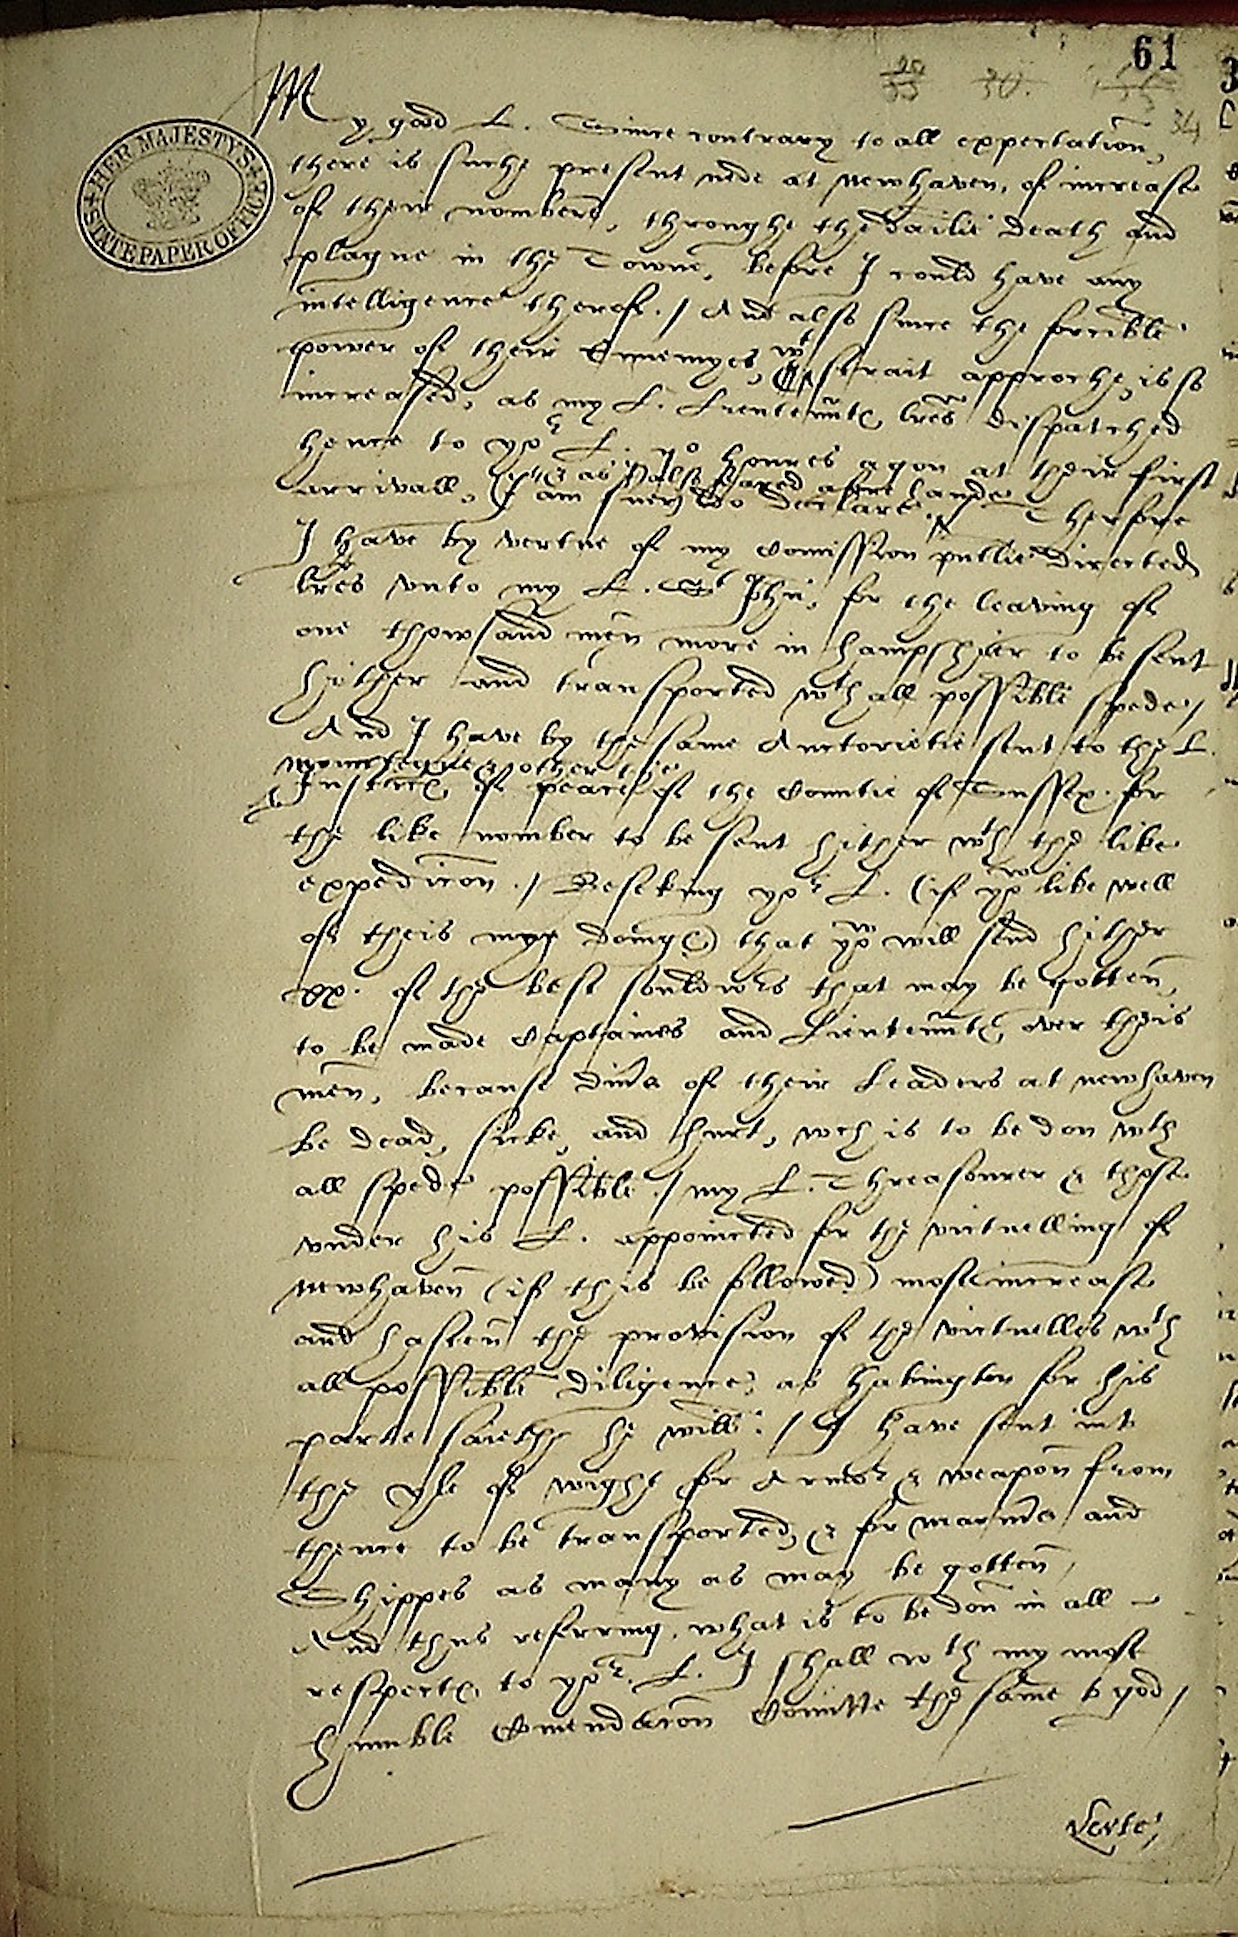 61
30.
34
HER MAJESTY'S STATE PAPER OFFICE
My good L. Since contrary to all expectation,
there is suche present nede at Newhaven, of increase
of their nombers, throughe the dailie death and
plague in the Towne, before I could have any
intelligence therof ./ And also since the forcible
power of their Ennemyes, wt strait approche, is so
increased, as my L. Lieutennts lres dispatched
hence to yor L. houres agon at their first
arrivall, (I am suer) do declare. / Therfore
as also afore hande
I have by vertue of my Comission public directed
lres unto my L. St John, for the leaving of
one thowsand men more in Hampshier to be sent
hither and transported wth all possible spede /
And I have by the same Auctoritie sent to the L.
Mountegue & other the
Justices of peace of the Countie of Sussex for
the like nomber to be sent hither wth the like
expedicon ./ Beseking yor L. (if yow like well
of theis mye doinges) that yow will send hither
xx. of the best souldiors that may be gotten,
to be made Captaines and Lieutennts over theis
men, because divers of their Leaders at newhaven
be dead, sicke, and hurt, wch is to be don wth
all spede possible ./ my L. Threasourer & those
under his L. appointed for the victuelling of
Newhaven (if this be followed) most increase
and hasten the provision of the victuelles wth
all possible diligence, as Habington for his
parte saieth he will ./ I have sent into
the Isle of wight for Armor & weapon from
thence to be transported, & for mariners and
Shippes as many as may be gotten,
And thus referring what is to be don in all
respectes to yor. L. I shall wth my most
humble Comendacon Comitte the same to god /